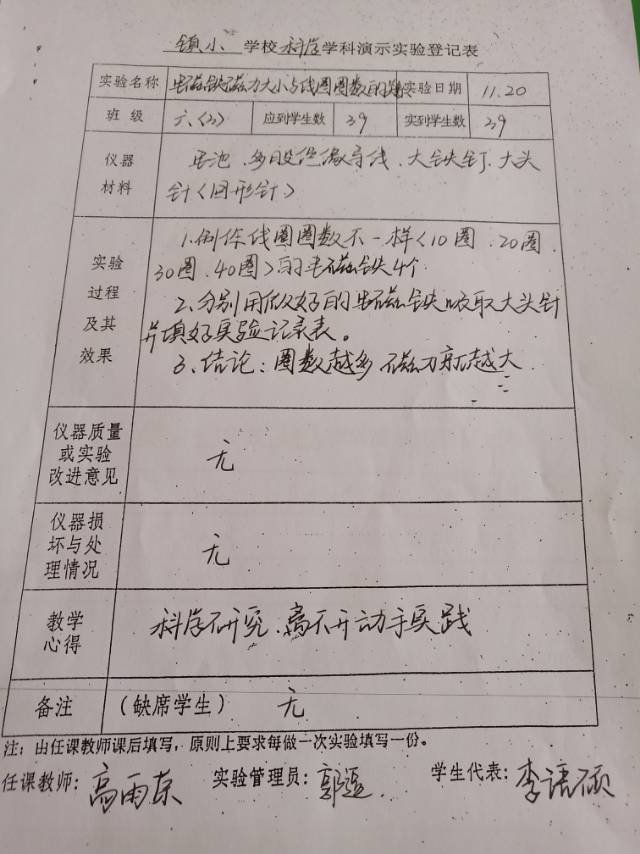 镇小 学校 科学 学科演示实验登记表
实验名称 电磁铁磁力大小与线圈圈数的 实验日期 11.20
班 级 六(2) 应到学生数 39 实到学生数 39
仪器 电池、多股绝缘导线、大铁钉、大头
材料 针(回形针)
1.制作线圈圈数不一样(10圈、20圈
实验 30圈、40圈)的电磁铁4个
过程 2、分别用做好的电磁铁吸取大头针
及其 并填好实验记录表。
效果 3、结论:圈数越多 磁力就越大
仪器质量
或实验 无
改进意见
仪器损
坏与处 无
理情况
教学 科学研究、离不开动手实践
心得
备注 (缺席学生) 无
注:由任课教师课后填写,原则上要求每做一次实验填写一份。
任课教师:高雨东 实验管理员:郭 学生代表:李语硕